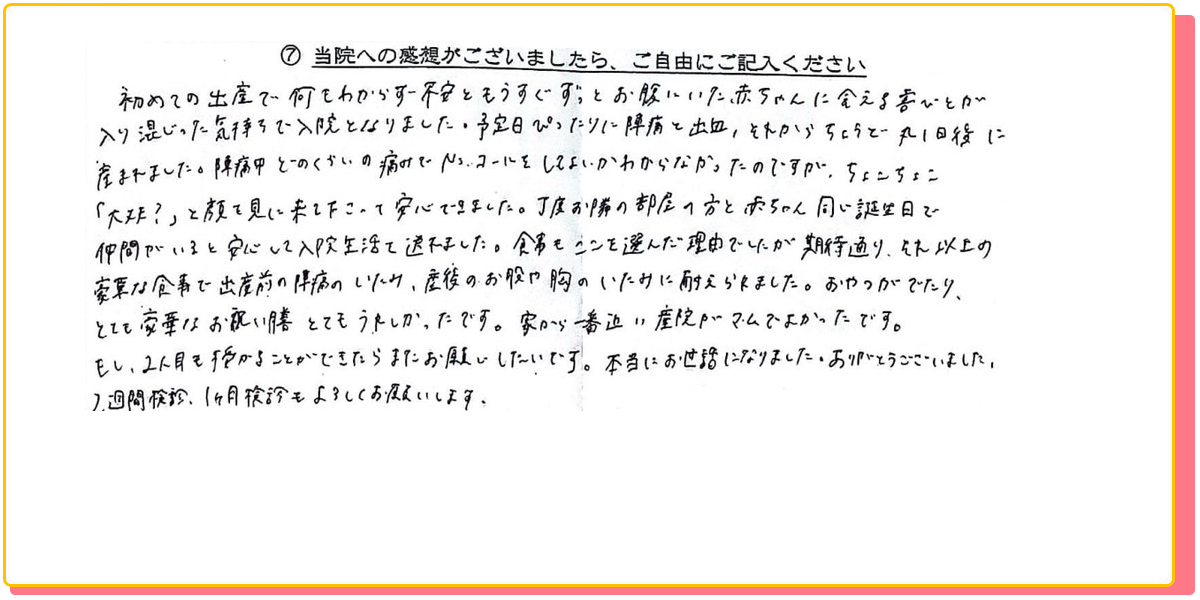 ⑦ 当院への感想がございましたら、ご自由にご記入ください
初めての出産で何もわからず不安ともうすぐずっとお腹にいた赤ちゃんに会える喜びとが
入り混じった気持ちで入院となりました。予定日ぴったりに陣痛と出血、それからちょうど丸1日後に
産まれました。陣痛中どのくらいの痛みでNs.コールをしてよいかわからなかったのですが、ちょこちょこ
「大丈夫?」と顔を見に来て下さって安心できました。丁度お隣の部屋の方と赤ちゃん同じ誕生日で
仲間がいると安心して入院生活を送れました。食事もここを選んだ理由でしたが期待通り、それ以上の
豪華な食事で出産前の陣痛のいたみ、産後のお股や胸のいたみに耐えられました。おやつがでたり、
とても豪華なお祝い膳とてもうれしかったです。家から一番近い産院がマムでよかったです。
もし、2人目も授かることができたらまたお願いしたいです。本当にお世話になりました。ありがとうございました。
2週間検診、1ヶ月検診もよろしくお願いします。